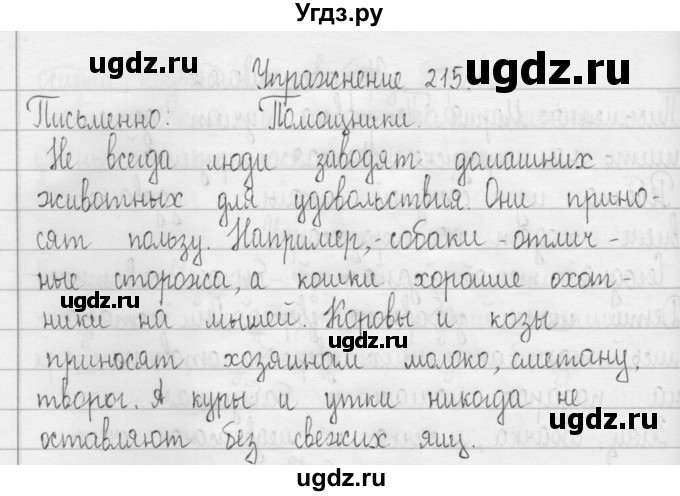 Угдз.ру
ugdz.ru ugdz.ru
Упражнение 215.
ugdz.ru
Письменно: Помощники.
Не всегда люди заводят домашних
животных для удовольствия. Они прино-
сят пользу. Например,-собаки-отлич-
ные сторожа, а кошки хорошие охот-
ugdz.ru
ники на мышей. Коровы и козы
ugdz.ru
приносят хозяинам молоко, сметану,
творог. А куры и утки никогда не
оставляют без свежих яиц.
ugdz.ru ugdz.ru
ugdz.ru